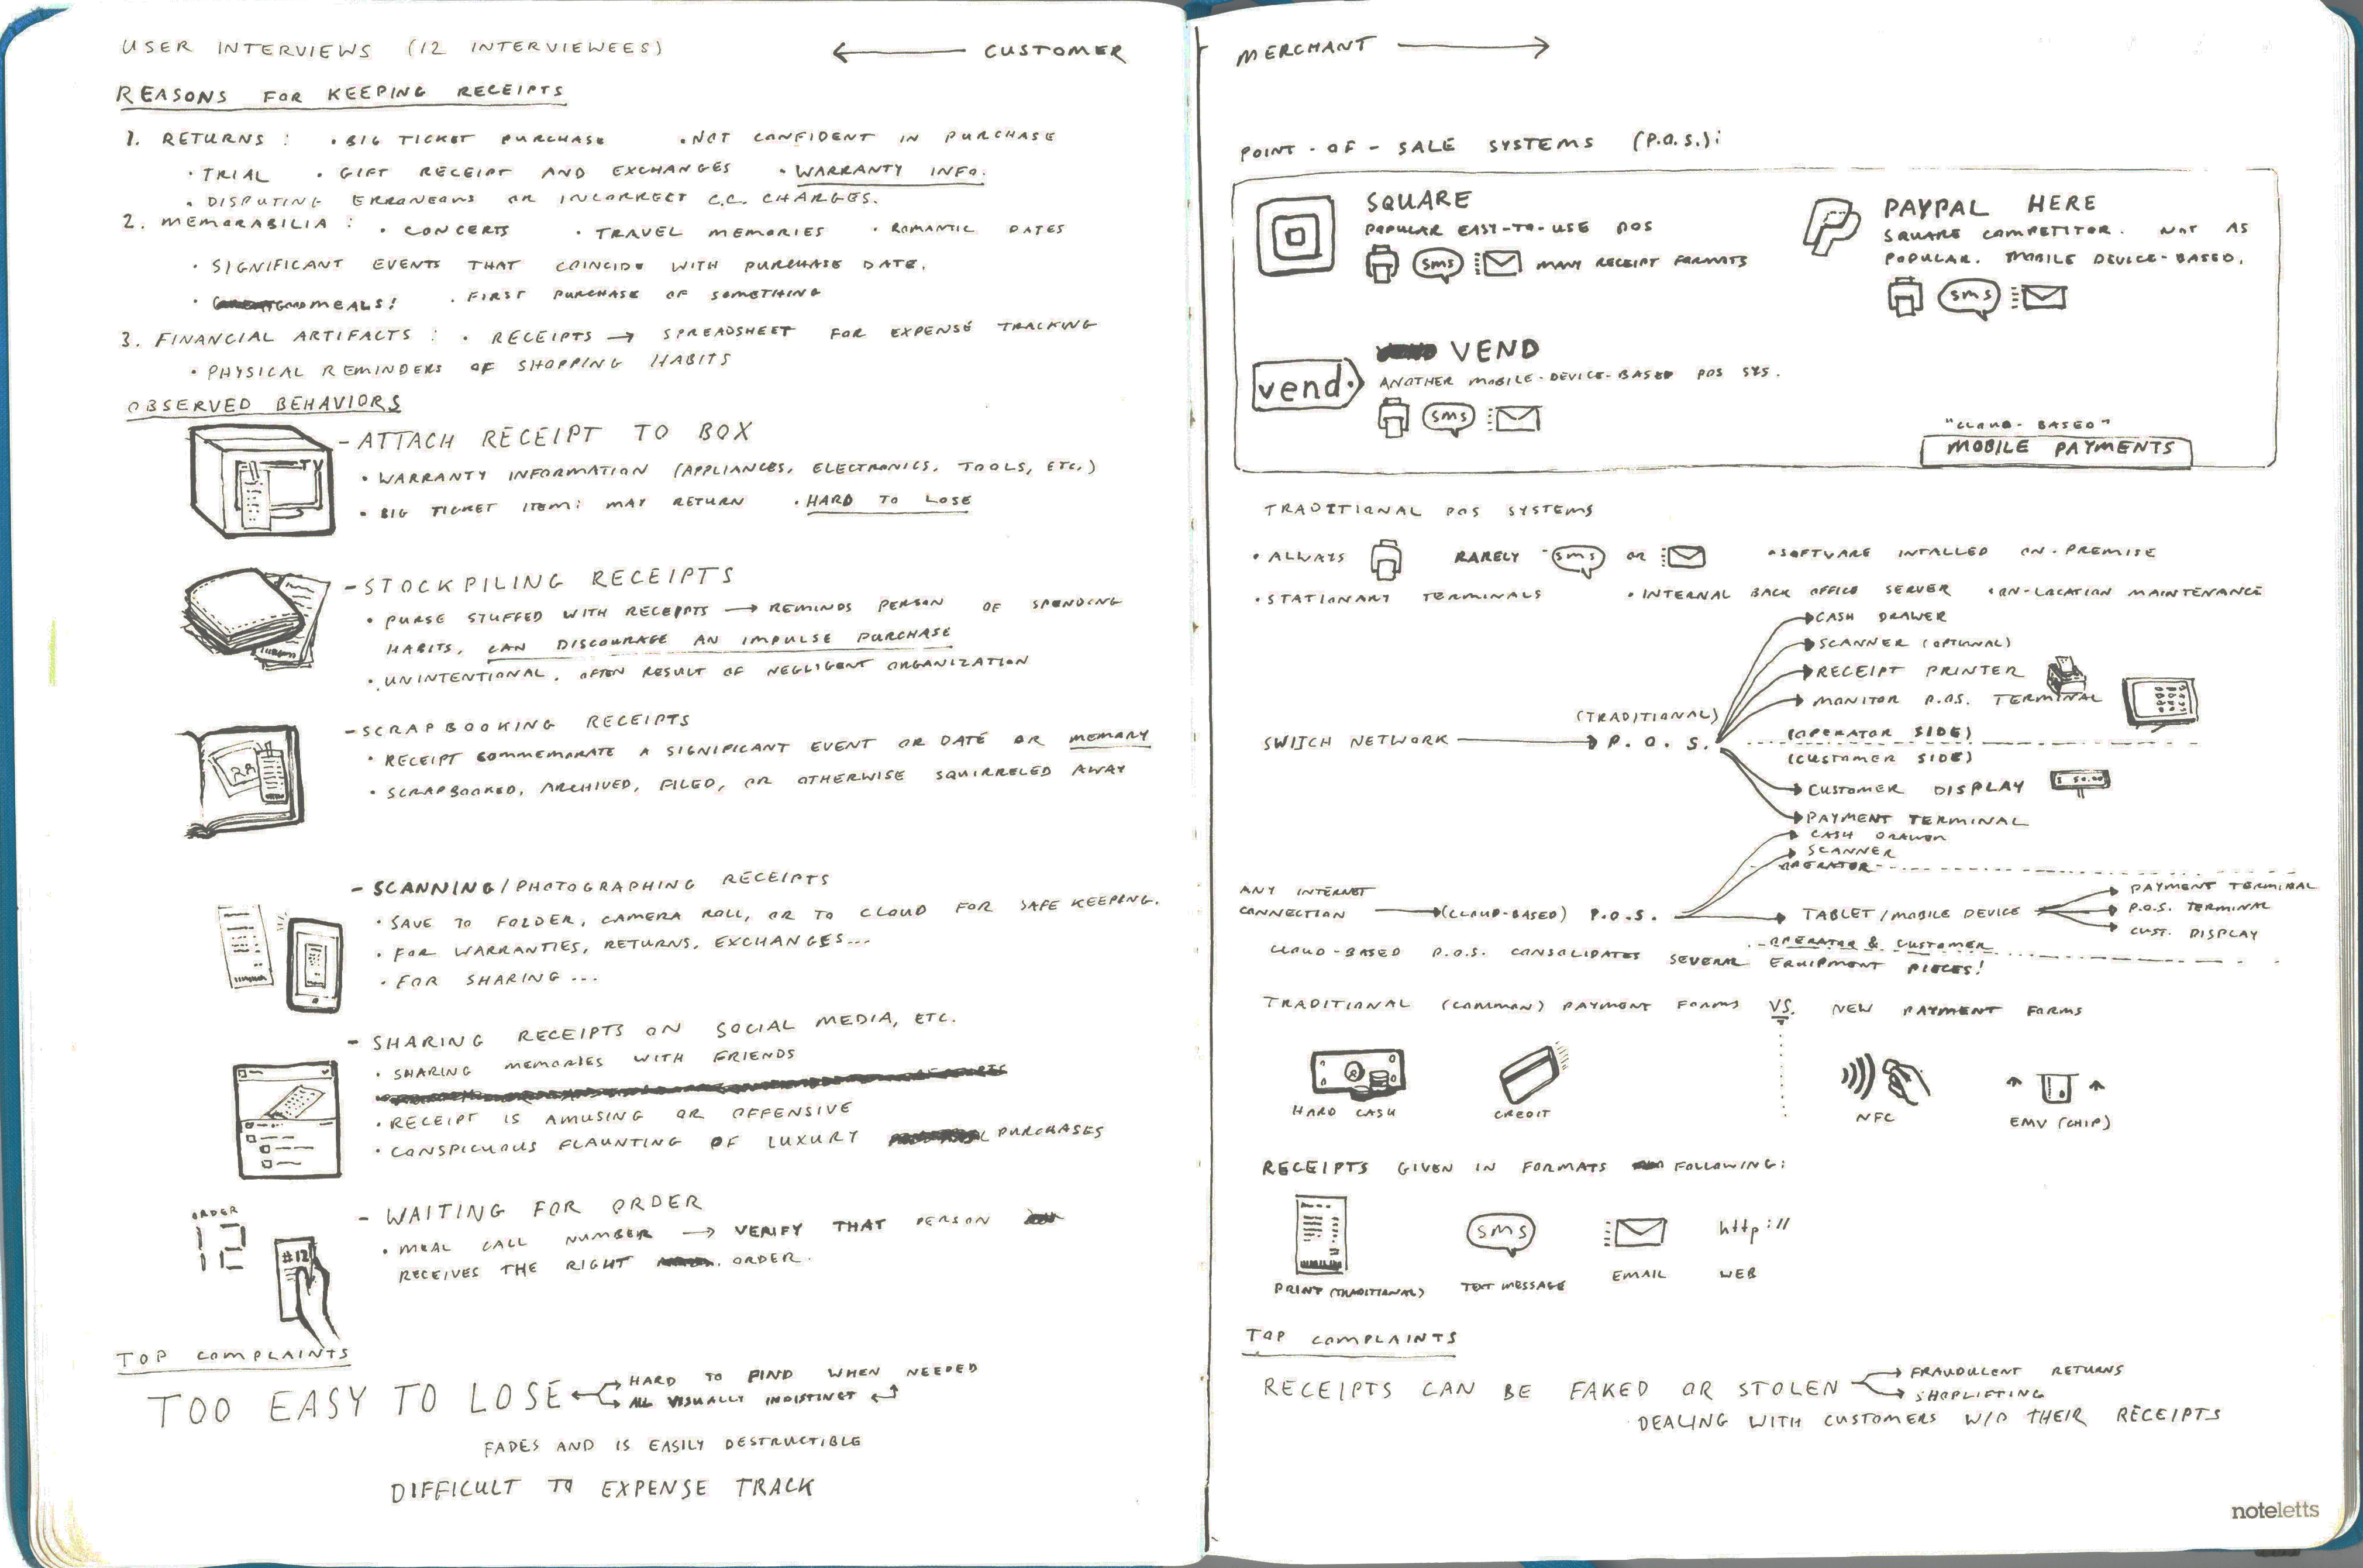 USER INTERVIEWS (12 INTERVIEWEES)
← CUSTOMER
REASONS FOR KEEPING RECEIPTS
1. RETURNS : • BIG TICKET PURCHASE • NOT CONFIDENT IN PURCHASE
• TRIAL • GIFT RECEIPT AND EXCHANGES • WARRANTY INFO.
• DISPUTING ERRONEOUS OR INCORRECT C.C. CHARGES.
2. MEMORABILIA : • CONCERTS • TRAVEL MEMORIES • ROMANTIC DATES
• SIGNIFICANT EVENTS THAT COINCIDE WITH PURCHASE DATE.
• GOOD MEALS! • FIRST PURCHASE OF SOMETHING
3. FINANCIAL ARTIFACTS : • RECEIPTS → SPREADSHEET FOR EXPENSE TRACKING
• PHYSICAL REMINDERS OF SHOPPING HABITS
OBSERVED BEHAVIORS
TV
- ATTACH RECEIPT TO BOX
• WARRANTY INFORMATION (APPLIANCES, ELECTRONICS, TOOLS, ETC.)
• BIG TICKET ITEM: MAY RETURN • HARD TO LOSE
- STOCKPILING RECEIPTS
• PURSE STUFFED WITH RECEIPTS → REMINDS PERSON OF SPENDING
HABITS, CAN DISCOURAGE AN IMPULSE PURCHASE
• UNINTENTIONAL, OFTEN RESULT OF NEGLIGENT ORGANIZATION
- SCRAPBOOKING RECEIPTS
• RECEIPT COMMEMORATE A SIGNIFICANT EVENT OR DATE OR MEMORY
• SCRAPBOOKED, ARCHIVED, FILED, OR OTHERWISE SQUIRRELED AWAY
- SCANNING/PHOTOGRAPHING RECEIPTS
• SAVE TO FOLDER, CAMERA ROLL, OR TO CLOUD FOR SAFE KEEPING.
• FOR WARRANTIES, RETURNS, EXCHANGES...
• FOR SHARING...
- SHARING RECEIPTS ON SOCIAL MEDIA, ETC.
• SHARING MEMORIES WITH FRIENDS
• RECEIPT IS AMUSING OR OFFENSIVE
• CONSPICUOUS FLAUNTING OF LUXURY PURCHASES
ORDER
12
#12
- WAITING FOR ORDER
• MEAL CALL NUMBER → VERIFY THAT PERSON
RECEIVES THE RIGHT ORDER.
TOP COMPLAINTS
TOO EASY TO LOSE
HARD TO FIND WHEN NEEDED
ALL VISUALLY INDISTINCT
FADES AND IS EASILY DESTRUCTIBLE
DIFFICULT TO EXPENSE TRACK
MERCHANT →
POINT-OF-SALE SYSTEMS (P.O.S.):
SQUARE
POPULAR EASY-TO-USE POS
SMS MANY RECEIPT FORMATS
PAYPAL HERE
SQUARE COMPETITOR. NOT AS
POPULAR. MOBILE DEVICE-BASED.
SMS
vend
VEND
ANOTHER MOBILE-DEVICE-BASED POS SYS.
SMS
"CLOUD-BASED"
MOBILE PAYMENTS
TRADITIONAL POS SYSTEMS
• ALWAYS RARELY SMS OR • SOFTWARE INTALLED ON-PREMISE
• STATIONARY TERMINALS • INTERNAL BACK OFFICE SERVER • ON-LOCATION MAINTENANCE
CASH DRAWER
SCANNER (OPTIONAL)
RECEIPT PRINTER
MONITOR P.O.S. TERMINAL
(TRADITIONAL)
SWITCH NETWORK → P.O.S.
(OPERATOR SIDE)
(CUSTOMER SIDE)
CUSTOMER DISPLAY
PAYMENT TERMINAL
CASH DRAWER
SCANNER
OPERATOR
ANY INTERNET
CONNECTION → (CLOUD-BASED) P.O.S. → TABLET/MOBILE DEVICE
PAYMENT TERMINAL
P.O.S. TERMINAL
CUST. DISPLAY
OPERATOR & CUSTOMER
CLOUD-BASED P.O.S. CONSOLIDATES SEVERAL EQUIPMENT PIECES!
TRADITIONAL (COMMON) PAYMENT FORMS VS. NEW PAYMENT FORMS
HARD CASH
CREDIT
NFC
EMV (CHIP)
RECEIPTS GIVEN IN FORMATS FOLLOWING:
SMS
http://
PRINT (TRADITIONAL)
TEXT MESSAGE
EMAIL
WEB
TOP COMPLAINTS
RECEIPTS CAN BE FAKED OR STOLEN
FRAUDULENT RETURNS
SHOPLIFTING
DEALING WITH CUSTOMERS W/O THEIR RECEIPTS
noteletts